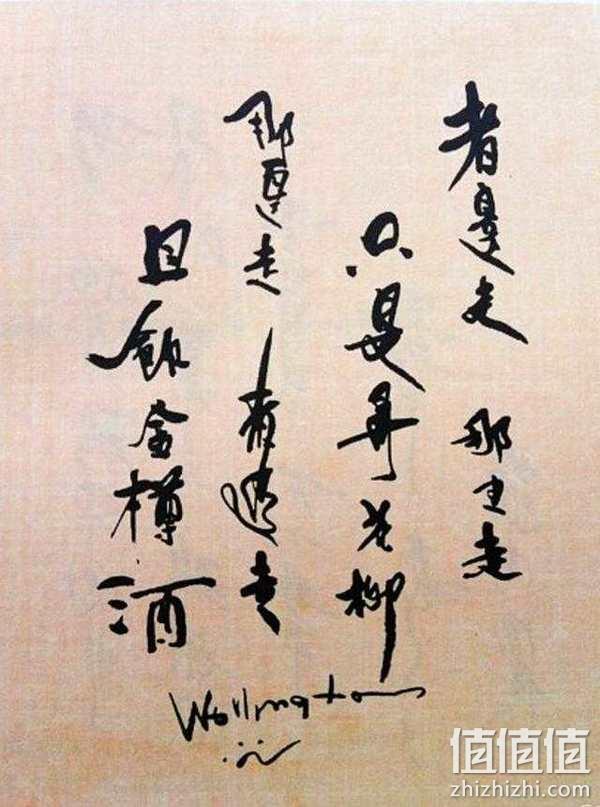 者邊走 那边走
只是尋花柳
那邊走 者邊走
且飲金樽酒
Wellington
值值值
zhizhizhi.com